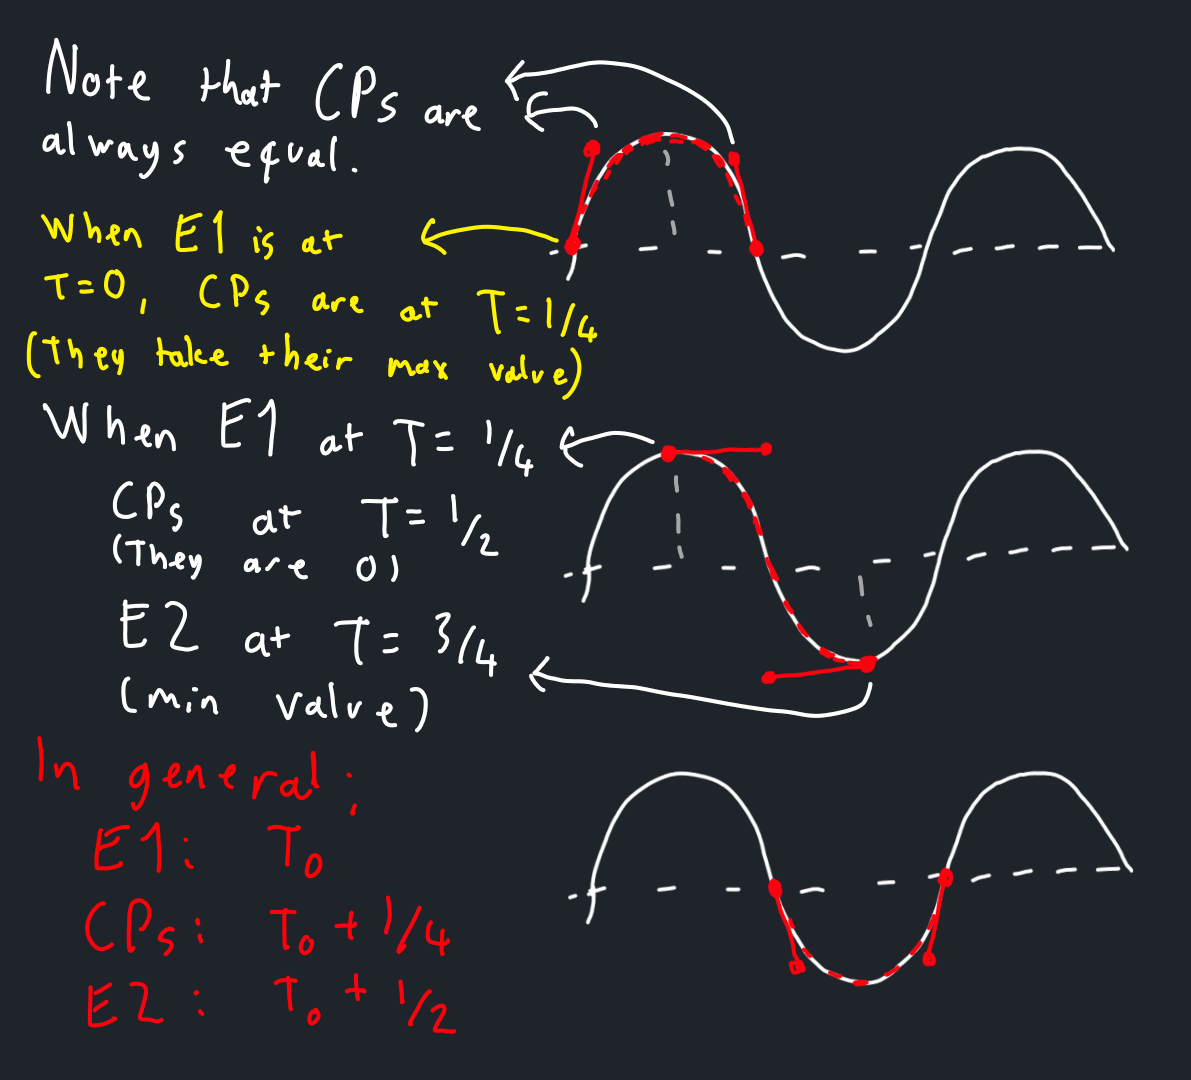 Note that CPs are
always equal.
When E1 is at
T=0, CPs are at T=1/4
(They take their max value)
When E1 at T= 1/4
CPs at T= 1/2
(They are 0)
E2 at T= 3/4
(min value)
In general;
E1: T₀
CPs: T₀ + 1/4
E2: T₀ + 1/2